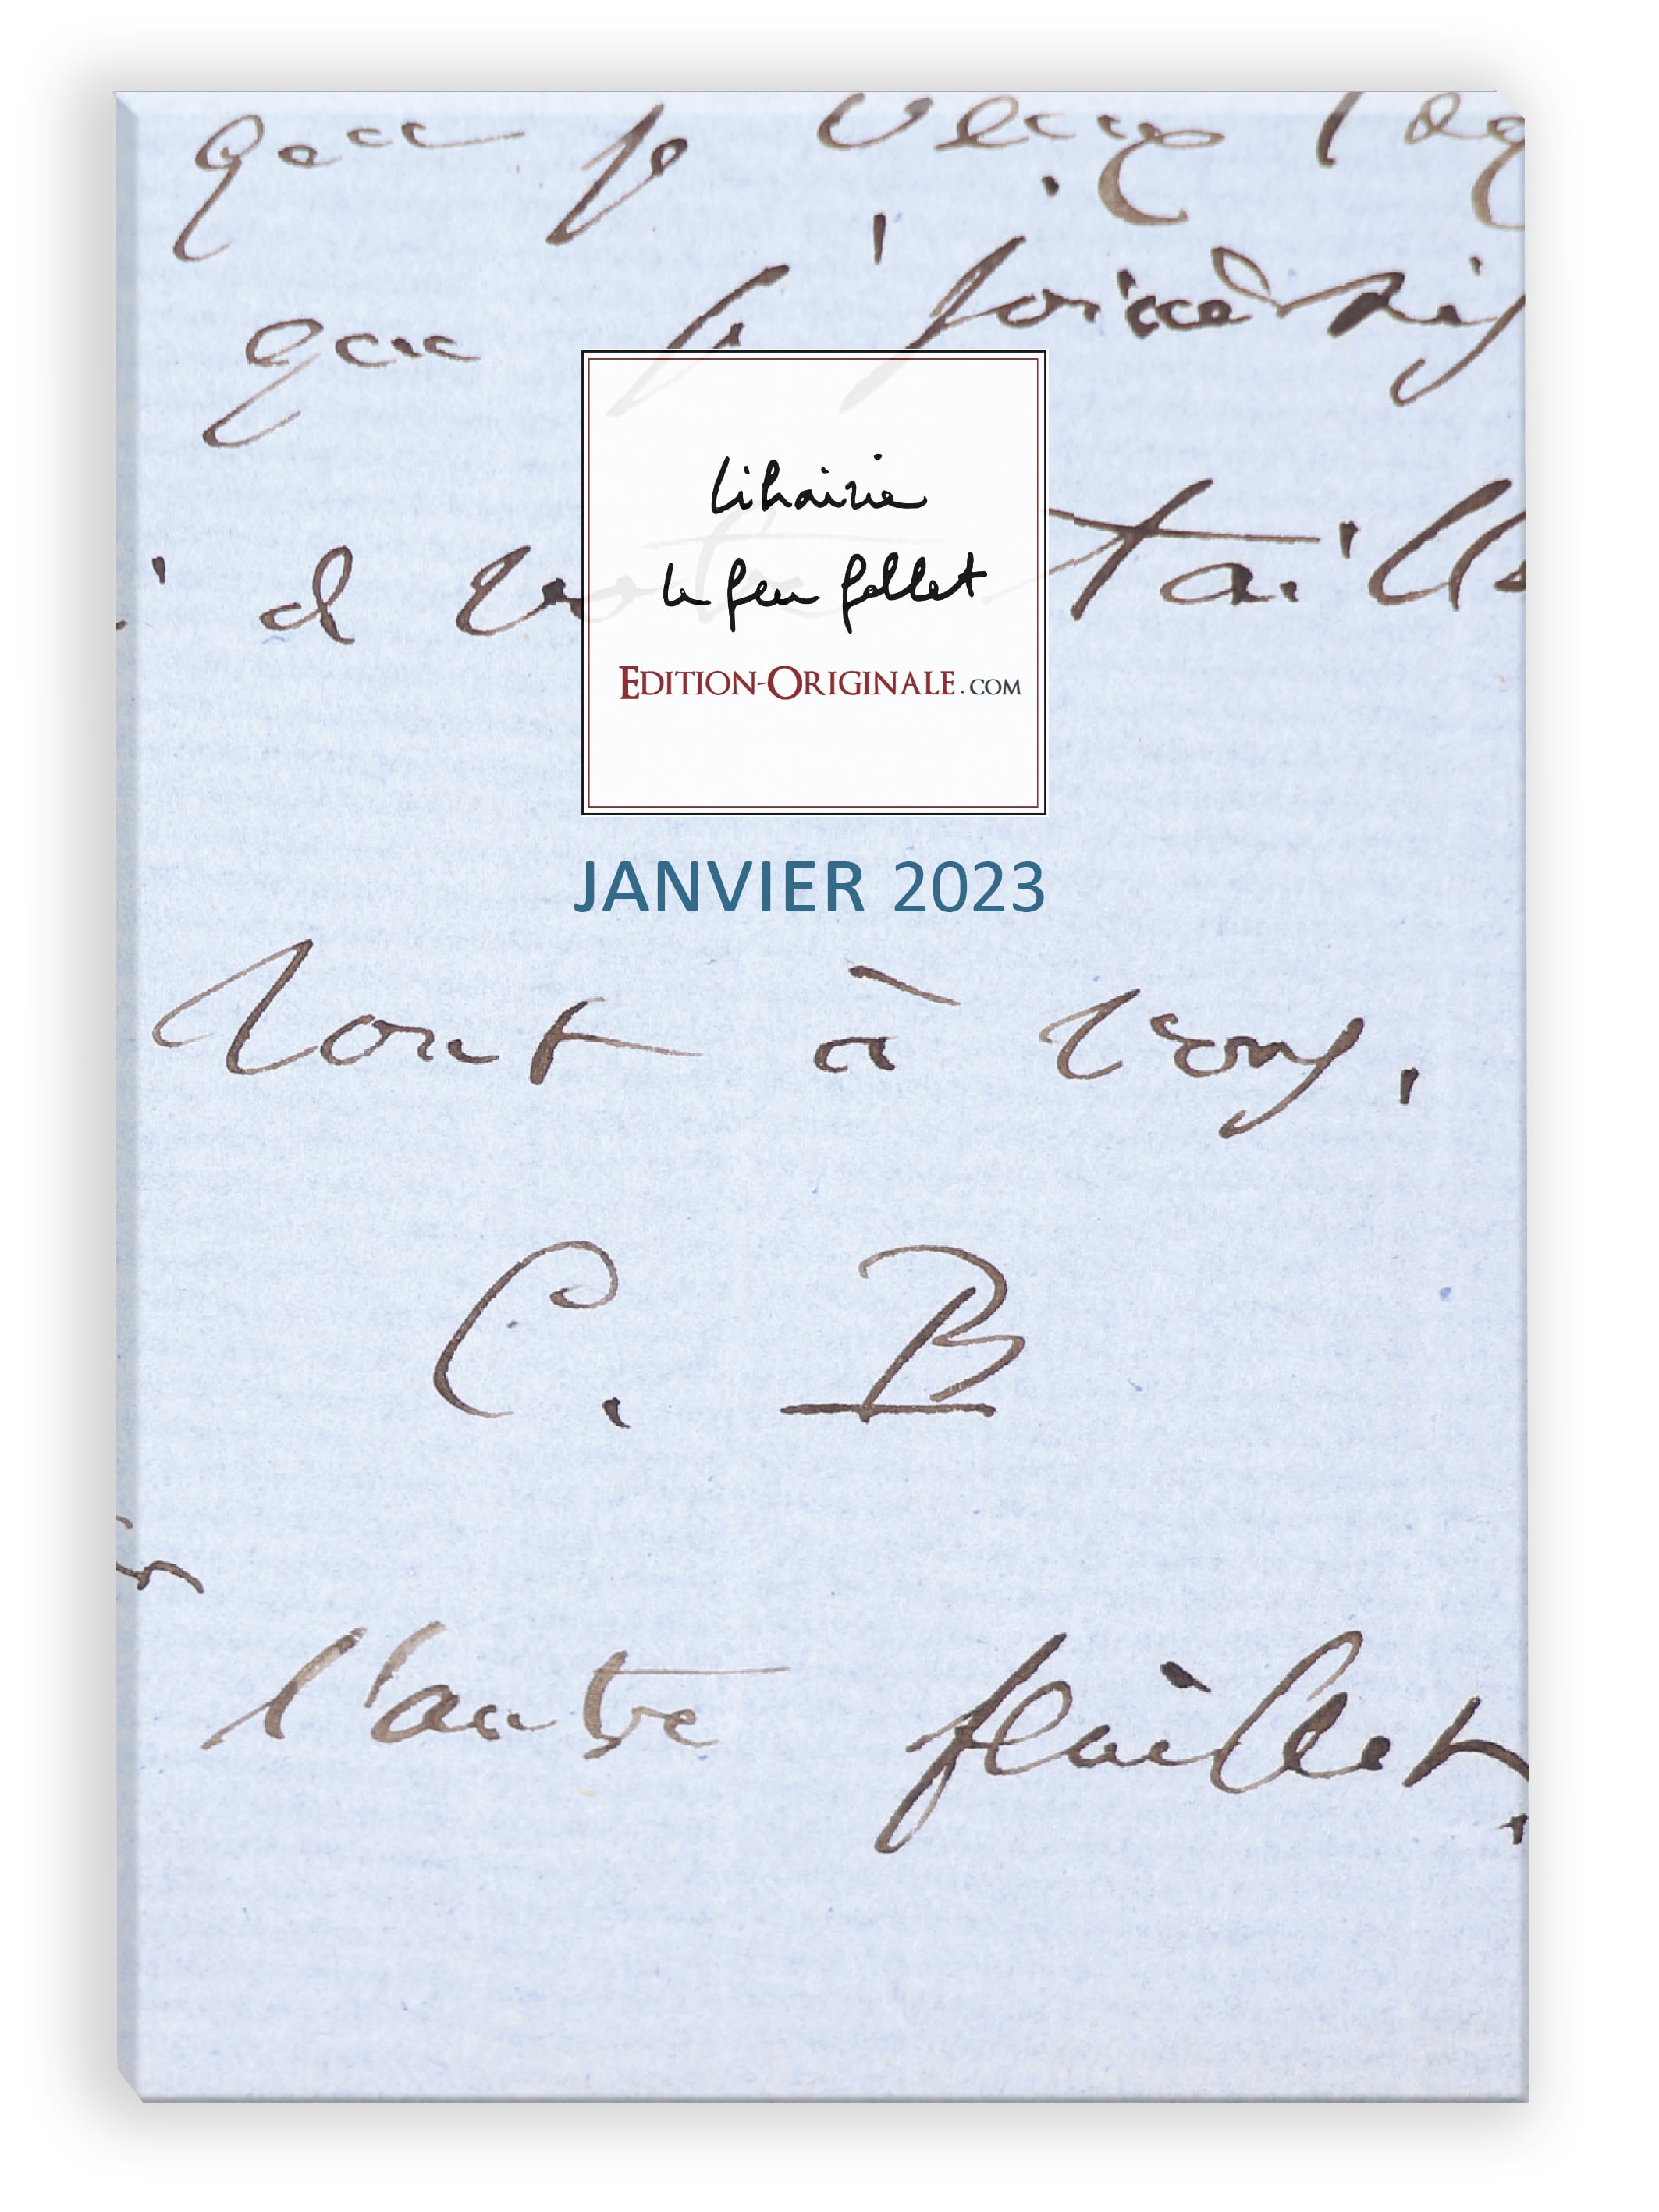 que je
que
taill
Librairie
le feu follet
EDITION-ORIGINALE.COM
JANVIER 2023
Tout à vous.
C. B
l'autre feuillet.